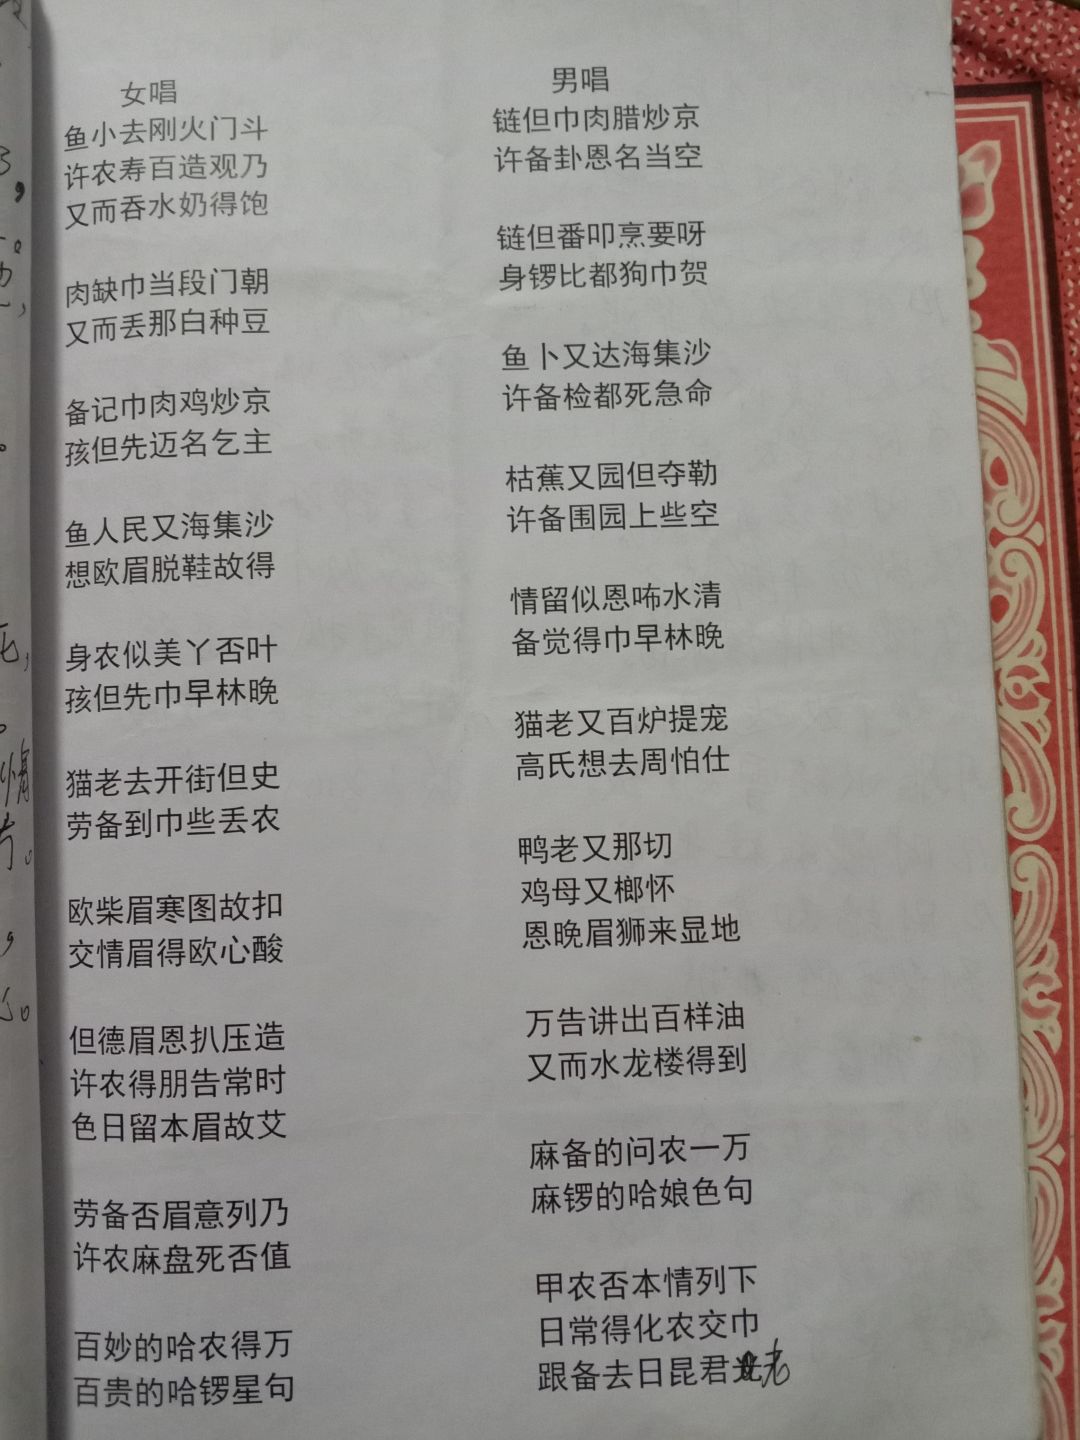 女唱
鱼小去刚火门斗
许农寿百造观乃
又而吞水奶得饱
肉缺巾当段门朝
又而丢那白种豆
备记巾肉鸡炒京
孩但先迈名乞主
鱼人民又海集沙
想欧眉脱鞋故得
身农似美丫否叶
孩但先巾早林晚
猫老去开街但史
劳备到巾些丢农
欧柴眉寒图故扣
交情眉得欧心酸
但德眉恩扒压造
许农得朋告常时
色日留本眉故艾
劳备否眉意列乃
许农麻盘死否值
百妙的哈农得万
百贵的哈锣星句
男唱
链但巾肉腊炒京
许备卦恩名当空
链但番叩烹要呀
身锣比都狗巾贺
鱼卜又达海集沙
许备检都死急命
枯蕉又园但夺勒
许备围园上些空
情留似恩咘水清
备觉得巾早林晚
猫老又百炉提宠
高氏想去周怕仕
鸭老又那切
鸡母又榔怀
恩晚眉狮来显地
万告讲出百样油
又而水龙楼得到
麻备的问农一万
麻锣的哈娘色句
甲农否本情列下
日常得化农交巾
跟备去日昆君老